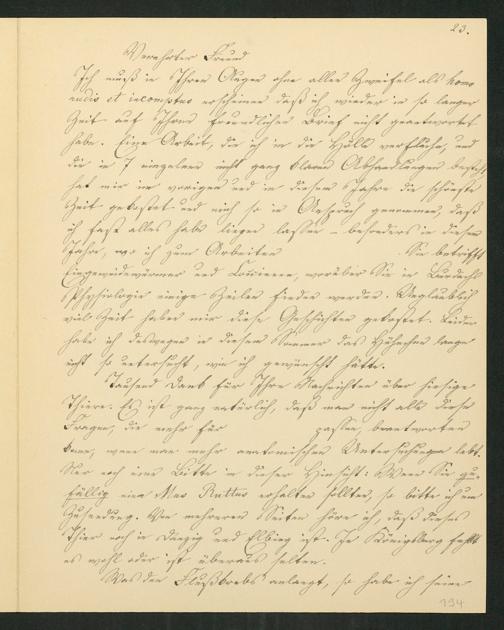 23.
Verehrter Freund
Ich muß in Ihren Augen ohne allen Zweifel als homo
rudis et incomptus erscheinen daß ich wieder in so langer
Zeit auf Ihren freundlichen Brief nicht geantwortet
habe. Eine Arbeit, die ich in die Hölle verfluche, und
die in 7 einzelnen nicht ganz klaren Abhandlungen besteht
hat mir im vorigen und in diesem Jahre die schönste
Zeit gekostet und mich so in Anspruch genommen, daß
ich fast alles habe liegen lassen – besonders in diesem
Jahr, wo ich zum Arbeiten . Sie betrifft
Eingeweidewürmer und , worüber Sie in Burdachs
Physiologie einige Zeilen finden werden. Unglaublich
viel Zeit haben mir diese Geschichten gekostet. Leider
habe ich deswegen in diesem Sommer das Hühnchen lange
nicht so untersucht, wie ich gewünscht hätte.
Tausend Dank für Ihre Nachrichten über hiesige
Thiere. Es ist ganz natürlich, daß man nicht alle diese
Fragen, die mehr für passen, beantworten
kann, wenn man mehr anatomischen Untersuchungen lebt.
Nur noch eine Bitte in dieser Hinsicht: Wenn Sie zu-
fällig eine Mus Rattus erhalten sollten, so bitte ich um
Zusendung. Von mehreren Seiten höre ich, daß dieses
Thier noch in Danzig und Elbing ist. In Königsberg fehlt
es wohl oder ist überaus selten.
Was den Flußkrebs anlangt, so habe ich seine
194